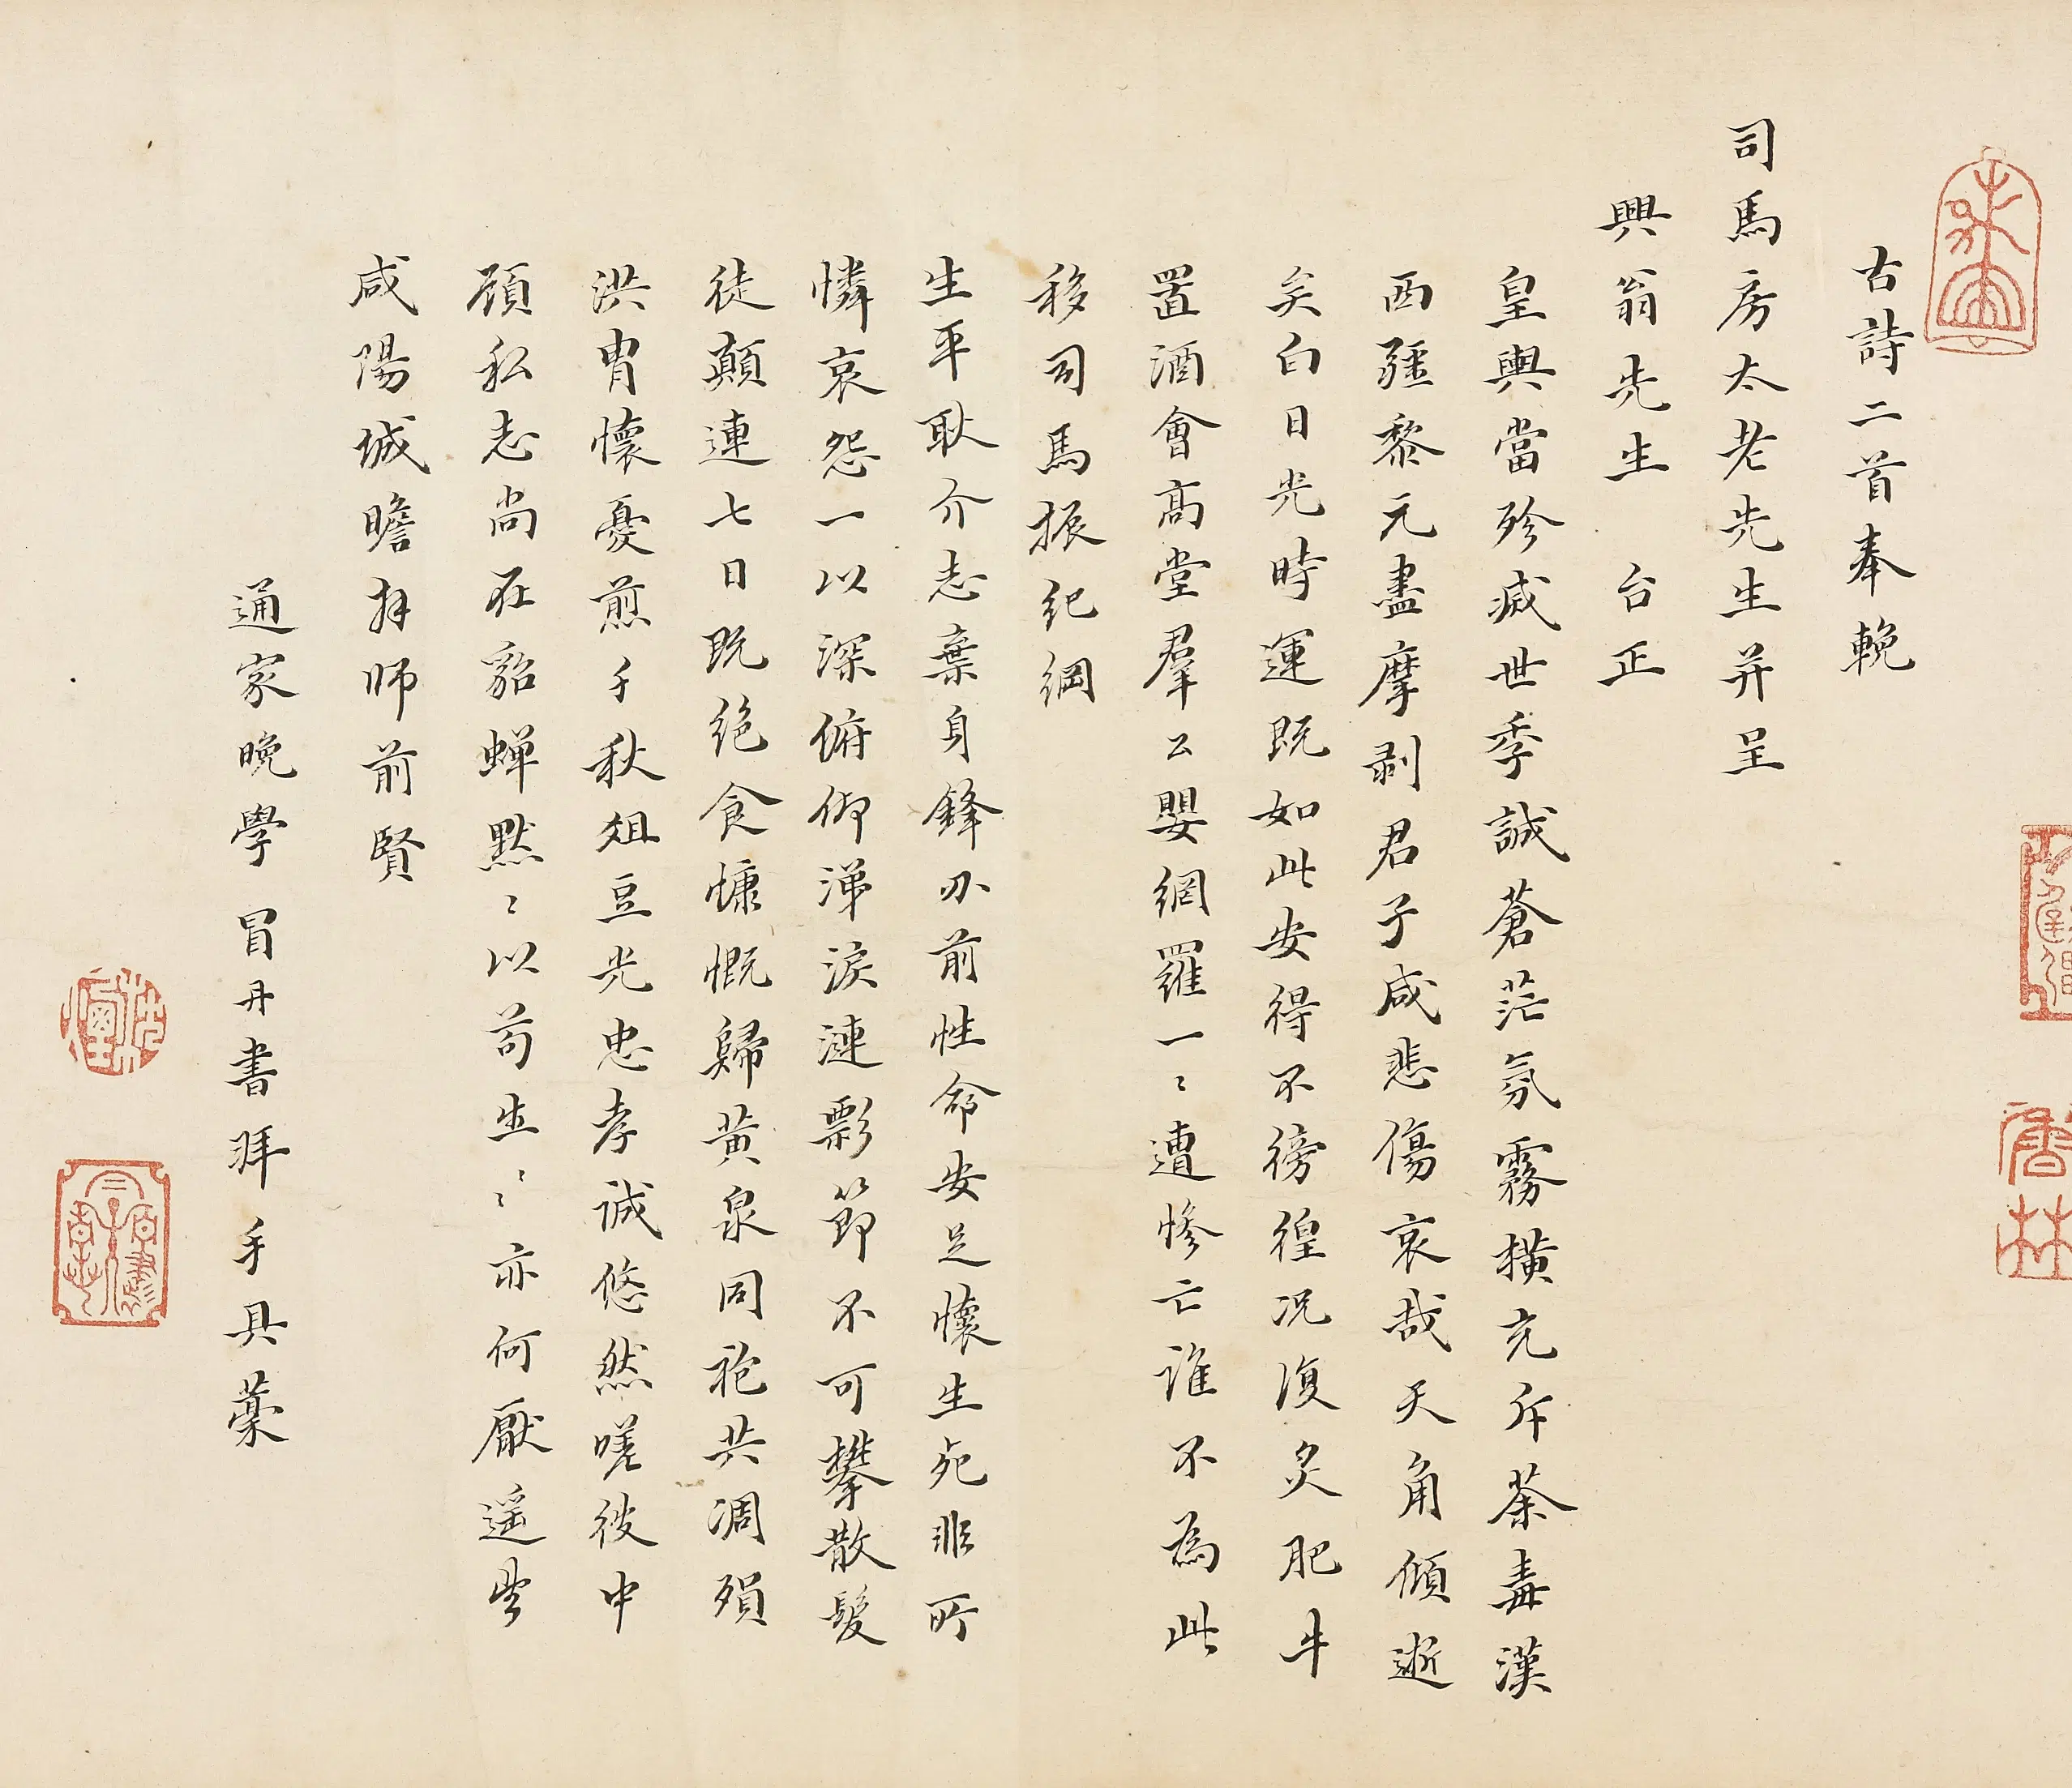 古詩二首奉輓
司馬房太老先生并呈
興翁先生 台正
皇輿當殄滅世季誠蒼茫氛霧橫充斥荼毒漢
西疆黎元盡摩剥君子咸悲傷哀哉天角傾逝
矣白日光時運既如此安得不徬徨况復炙肥牛
置酒會高堂羣公嬰網羅一〻遭慘亡誰不為此
移司馬振紀綱
生平耿介志棄身鋒刃前性命安足懷生死非所
憐哀怨一以深俯仰涕淚漣彯節不可攀散髮
徒顛連七日既絶食慷慨歸黄泉同袍共凋殞
洪胄懷憂煎千秋俎豆光忠孝誠悠然嗟彼中
顧私志尚在貂蟬黙〻以苟生〻亦何厭遥望
咸陽城瞻拜師前賢
通家晚學冒丹書拜手具藁